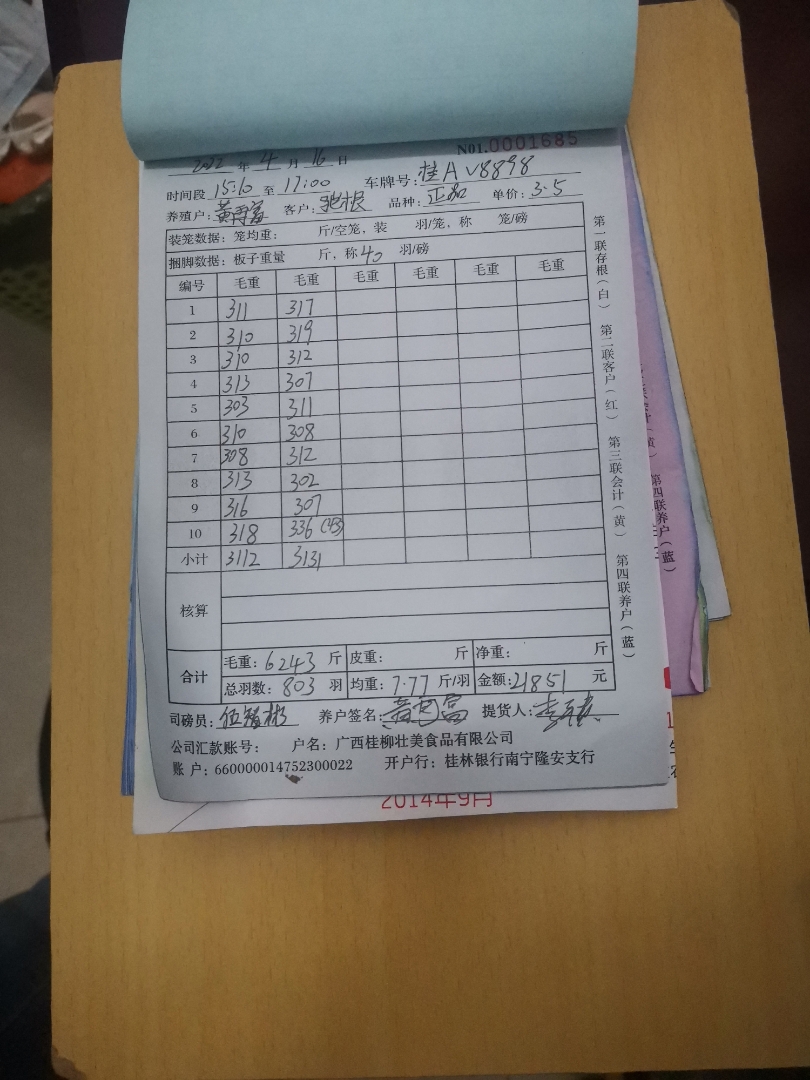 2022 年 4 月 16 日 N01.0001685
时间段 15:10 至 17:00 车牌号: 桂A V8898
养殖户: 黄 富 客户: 根 品种: 正 单价: 3.5
装笼数据: 笼均重: 斤/空笼, 装 羽/笼, 称 笼/磅
捆脚数据: 板子重量 斤, 称 40 羽/磅
编号 毛重 毛重 毛重 毛重 毛重 毛重
1 311 317
2 310 319
3 310 312
4 313 307
5 303 311
6 310 308
7 308 312
8 313 302
9 316 307
10 318 336 (43)
小计 3112 3131
核算
合计 毛重: 6243 斤 皮重: 斤 净重: 斤
总羽数: 803 羽 均重: 7.77 斤/羽 金额: 21851 元
司磅员: 伍 彬 养户签名: 黄 富 提货人: 李
公司汇款账号: 户名: 广西桂柳壮美食品有限公司
账 户: 660000014752300022 开户行: 桂林银行南宁隆安支行
第一联存根(白) 第二联客户(红) 第三联会计(黄) 第四联养户(蓝)
第四联养户(蓝)
2014年9月